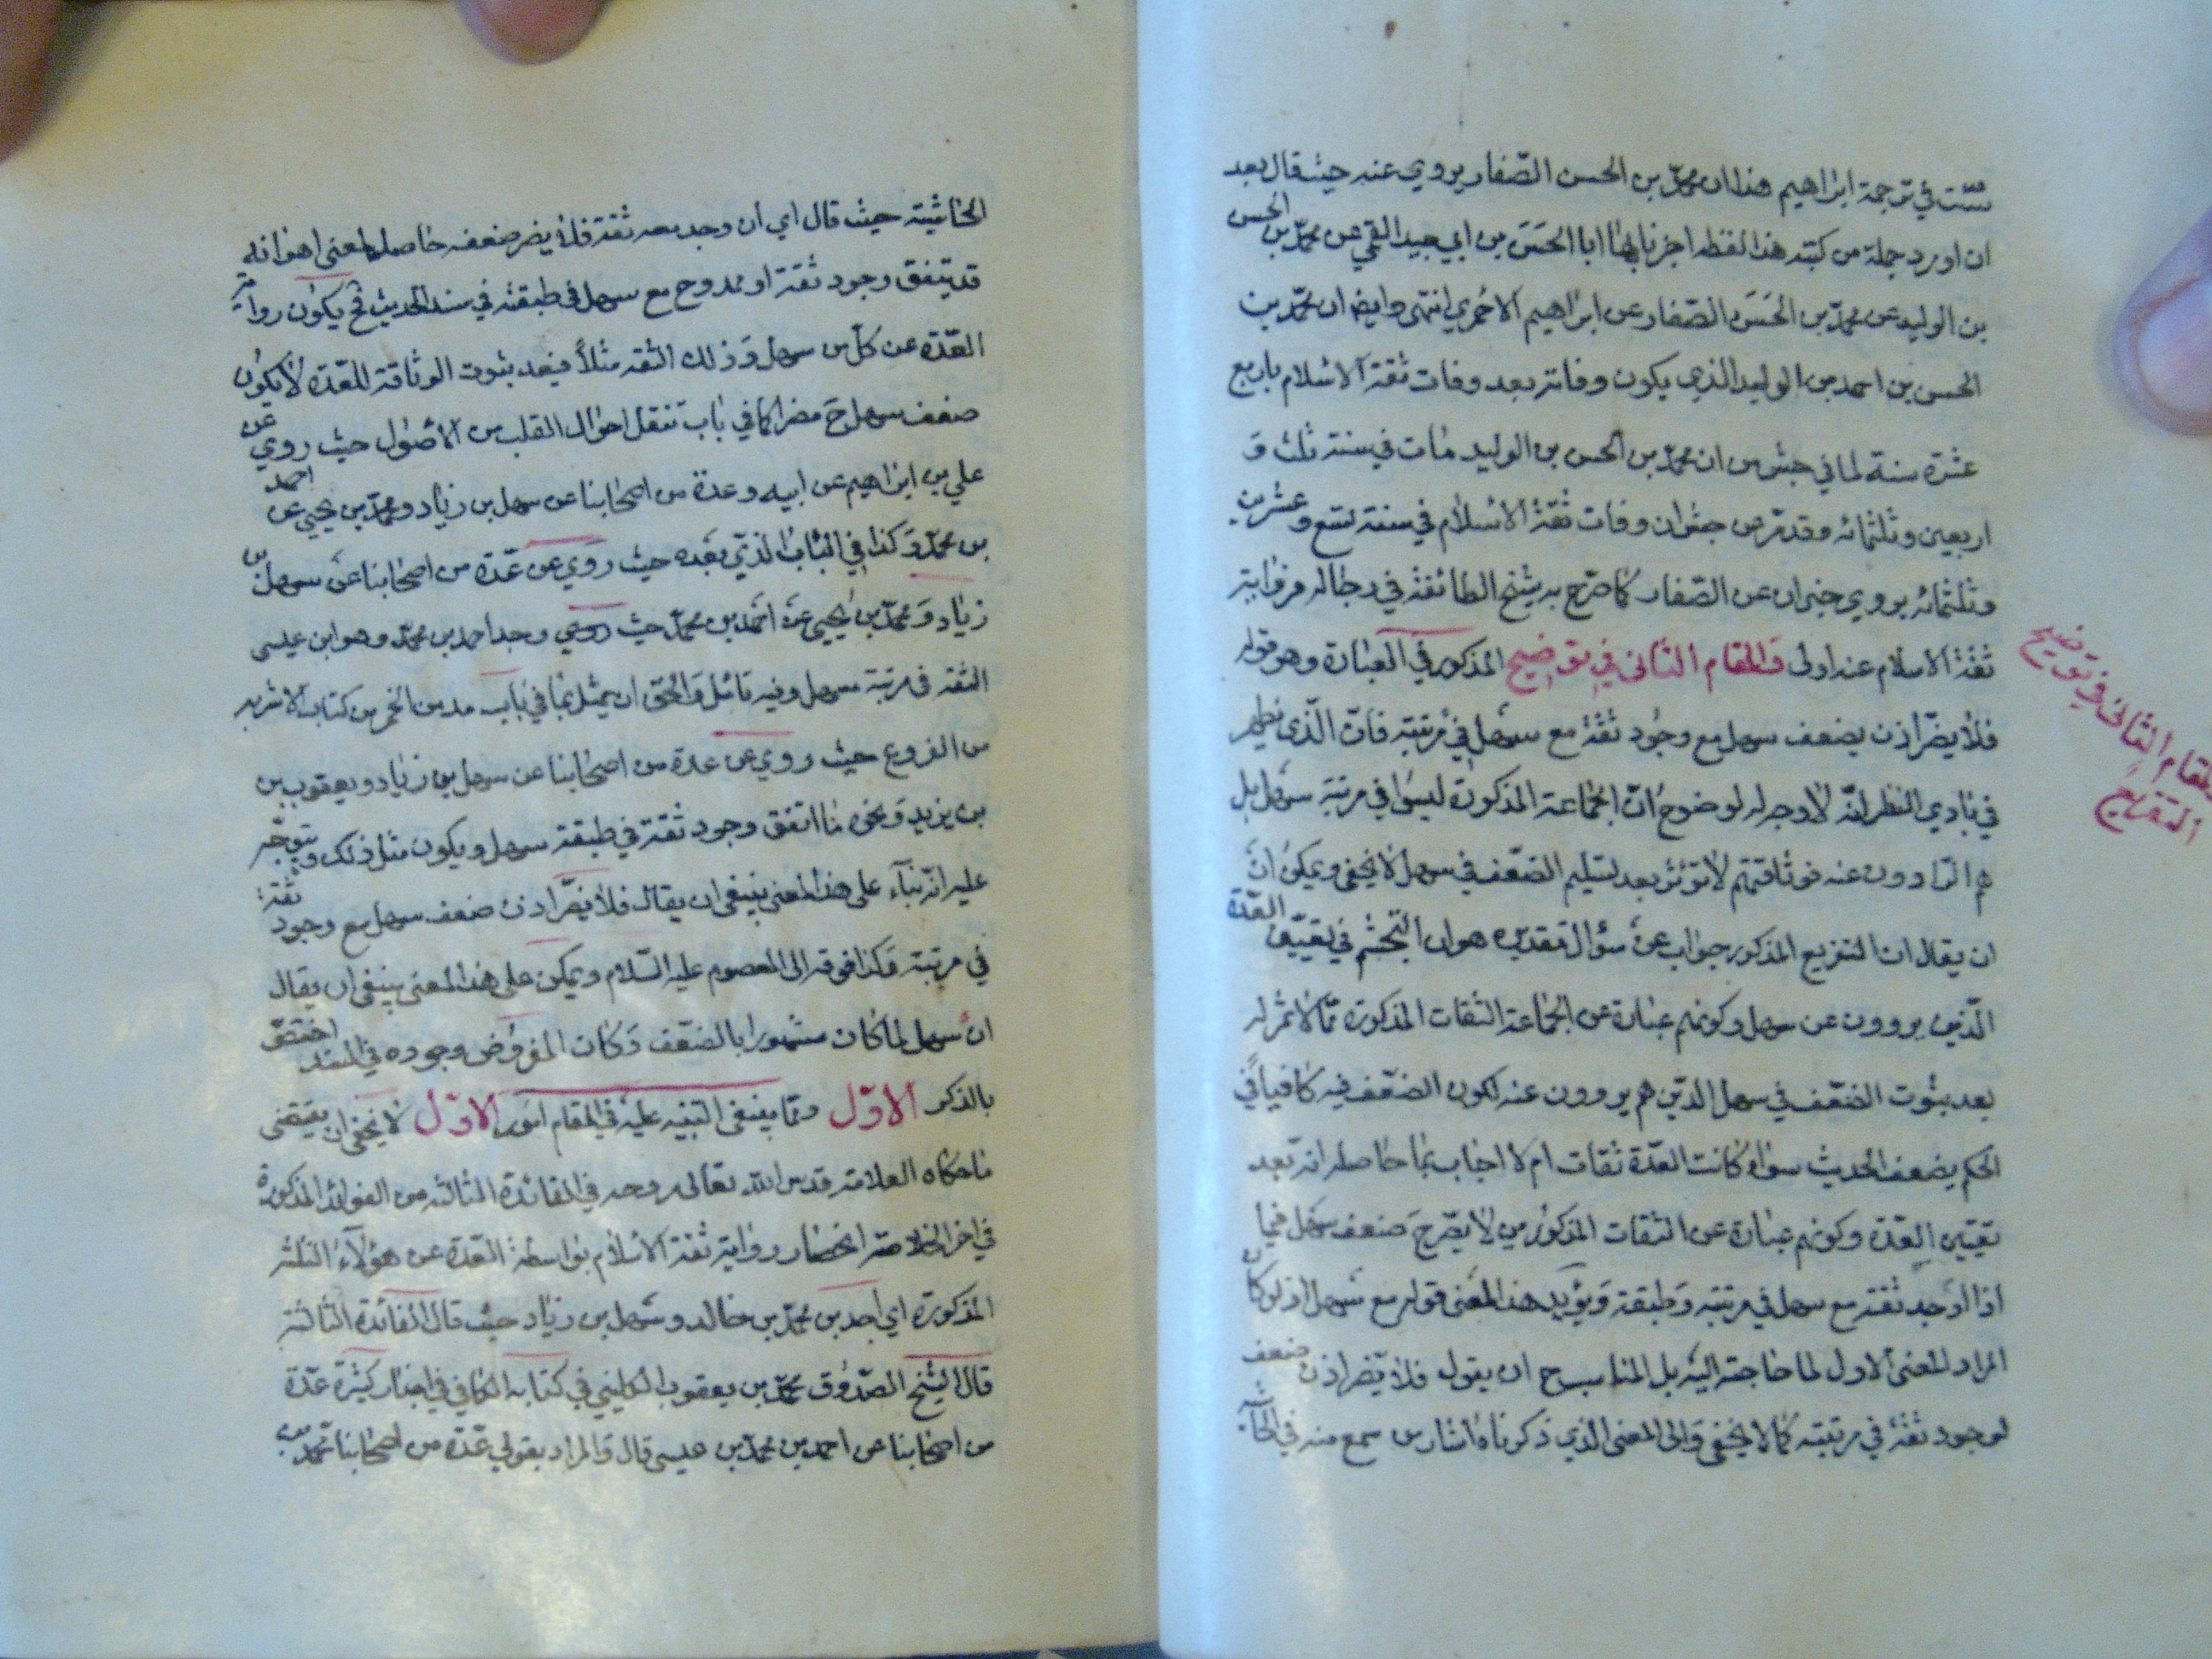 ست في ترجمة ابراهيم هذا ان محمّد بن الحسن الصّفار يروي عنه حيث قال بعد
ان اورد جملة من كتبه هذا لفظه اخبرنا بها ابا الحسَن بن ابي جيد القمي عن محمّد بن الحسن
بن الوليد عن محمّد بن الحَسَن الصّفار عن ابراهيم الاحمري انتهى وايضا ان محمّد بن
الحسن بن احمد بن الوليد الذي يكون وفاته بعد وفات ثقة الاسلام باربع
عشرة سنة لما في جش من ان محمّد بن الحسن بن الوليد مات في سنة ثلث و
اربعين وثلثمائه وقد مرّ من جش ان وفات ثقة الاسلام في سنة تسع وعشرين
وثلثمائه يروي عن الصّفار كما صرّح به شيخ الطائفة في رجاله فرواية
ثقة الاسلام عنه اولى والمقام الثاني في توضيح المذكور في العبارة وهو قوله
المقام الثاني في توضيح
التفريع
فلا يضرّ اذن بضعف سهل مع وجود ثقة مع سهل في مرتبته فانّ الّذي يظهر
في بادي النظر انّه لا وجه له لوضوح انّ الجماعة المذكورة ليسوا في مرتبة سهل بل
هم الرّاوون عنه فوثاقتهم لا تؤثر بعد تسليم الضّعف في سهل لا يخفى ويمكن انّ
ان يقال ان التفريع المذكور جواب عن سؤال مقدر هو ان التجشم في تعيين العدّة
الّذين يروون عن سهل وكونهم عبارة عن الجماعة الثقات المذكورة ممّا لا ثمر له
بعد ثبوت الضّعف في سهل الذين هم يروون عنه لكون الضّعف فيه كافيا في
الحكم بضعف الحديث سواء كانت العدّة ثقات ام لا اجاب بما حاصله انه بعد
تعيين العدّة وكونهم عبارة عن الثقات المذكورين لا يضرّ ح ضعف سهل فيما
اذا وجد ثقة مع سهل في مرتبته وطبقته ويؤيد هذا المعنى قوله مع سهل اذ لو كان
المراد المعنى الاول لما حاجة اليه بل المناسب ح ان يقول فلا يضرّ اذن ضعف
لوجود ثقة في مرتبته كما لا يخفى والى المعنى الذي ذكرناه اشار من سمع منه في الحا
الحاشية حيث قال اي ان وجد معه ثقة فلا يضر ضعفه حاصل المعنى هو انه
قد يتفق وجود ثقة او ممدوح مع سهل في طبقته في سند الحديث فح يكون رواية
العدّة عن كل من سهل وذلك الثقه مثلاً فبعد ثبوت الوثاقة للعدّة لا يكون
ضعف سهل ح مضرا كما في باب تنقل احوال القلب من الاصول حيث روي عن
علي بن ابراهيم عن ابيه وعدة من اصحابنا عن سهل بن زياد ومحمّد بن يحيى عن احمد
بن محمّد وكذا في الباب الذي بعده حيث روي عن عدّة من اصحابنا عن سهل بن
زياد ومحمّد بن يحيى عن احمد بن محمّد حيث روى وجد احمد بن محمّد وهو ابن عيسى
الثقه في مرتبة سهل وفيه تامّل والحق ان يمثل بما في باب مدمن الخمر من كتاب الاشربه
من الفروع حيث روي عن عدة من اصحابنا عن سهل بن زياد ويعقوب بن
بن يزيد ونحوه ما اتفق وجود ثقة في طبقة سهل ويكون مثل ذلك ويتوجّه
عليه انّه بناء على هذا المعنى ينبغي ان يقال فلا يضرّ اذن ضعف سهل مع وجود ثقة
في مرتبته وكذا فوقه الى المعصوم عليه السّلام ويمكن على هذا المعنى ينبغي ان يقال
انّ سهل لما كان مشهورا بالضّعف وكان المفروض وجوده في السند اختصّ
بالذكر الاوّل وممّا ينبغي التنبيه عليه في المقام امور الاوّل لا يخفى ان مقتضى
ما حكاه العلامة قدس الله تعالى روحه في الفائدة الثالثه من الفوائد المذكورة
في اخر الخلاصة انحصار رواية ثقة الاسلام بواسطة العدّة عن هؤلاء الثلثه
المذكورة اي احمد بن محمّد بن خالد وسهل بن زياد حيث قال الفائدة الثالثة
قال الشيخ الصدوق محمّد بن يعقوب الكليني في كتابه الكافي في اخبار كثيرة عدّة
من اصحابنا عن احمد بن محمّد بن عيسى قال والمراد بقولي عدّة من اصحابنا محمّد بن